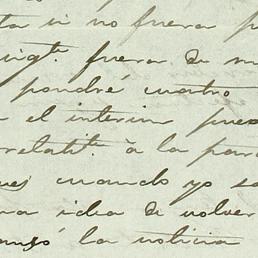 ta si no fuera p
fuera de m
pondré cuatro
el interin pues
relatte. à la par
ues cuando yo sa
na idea de volver
anzó la noticia